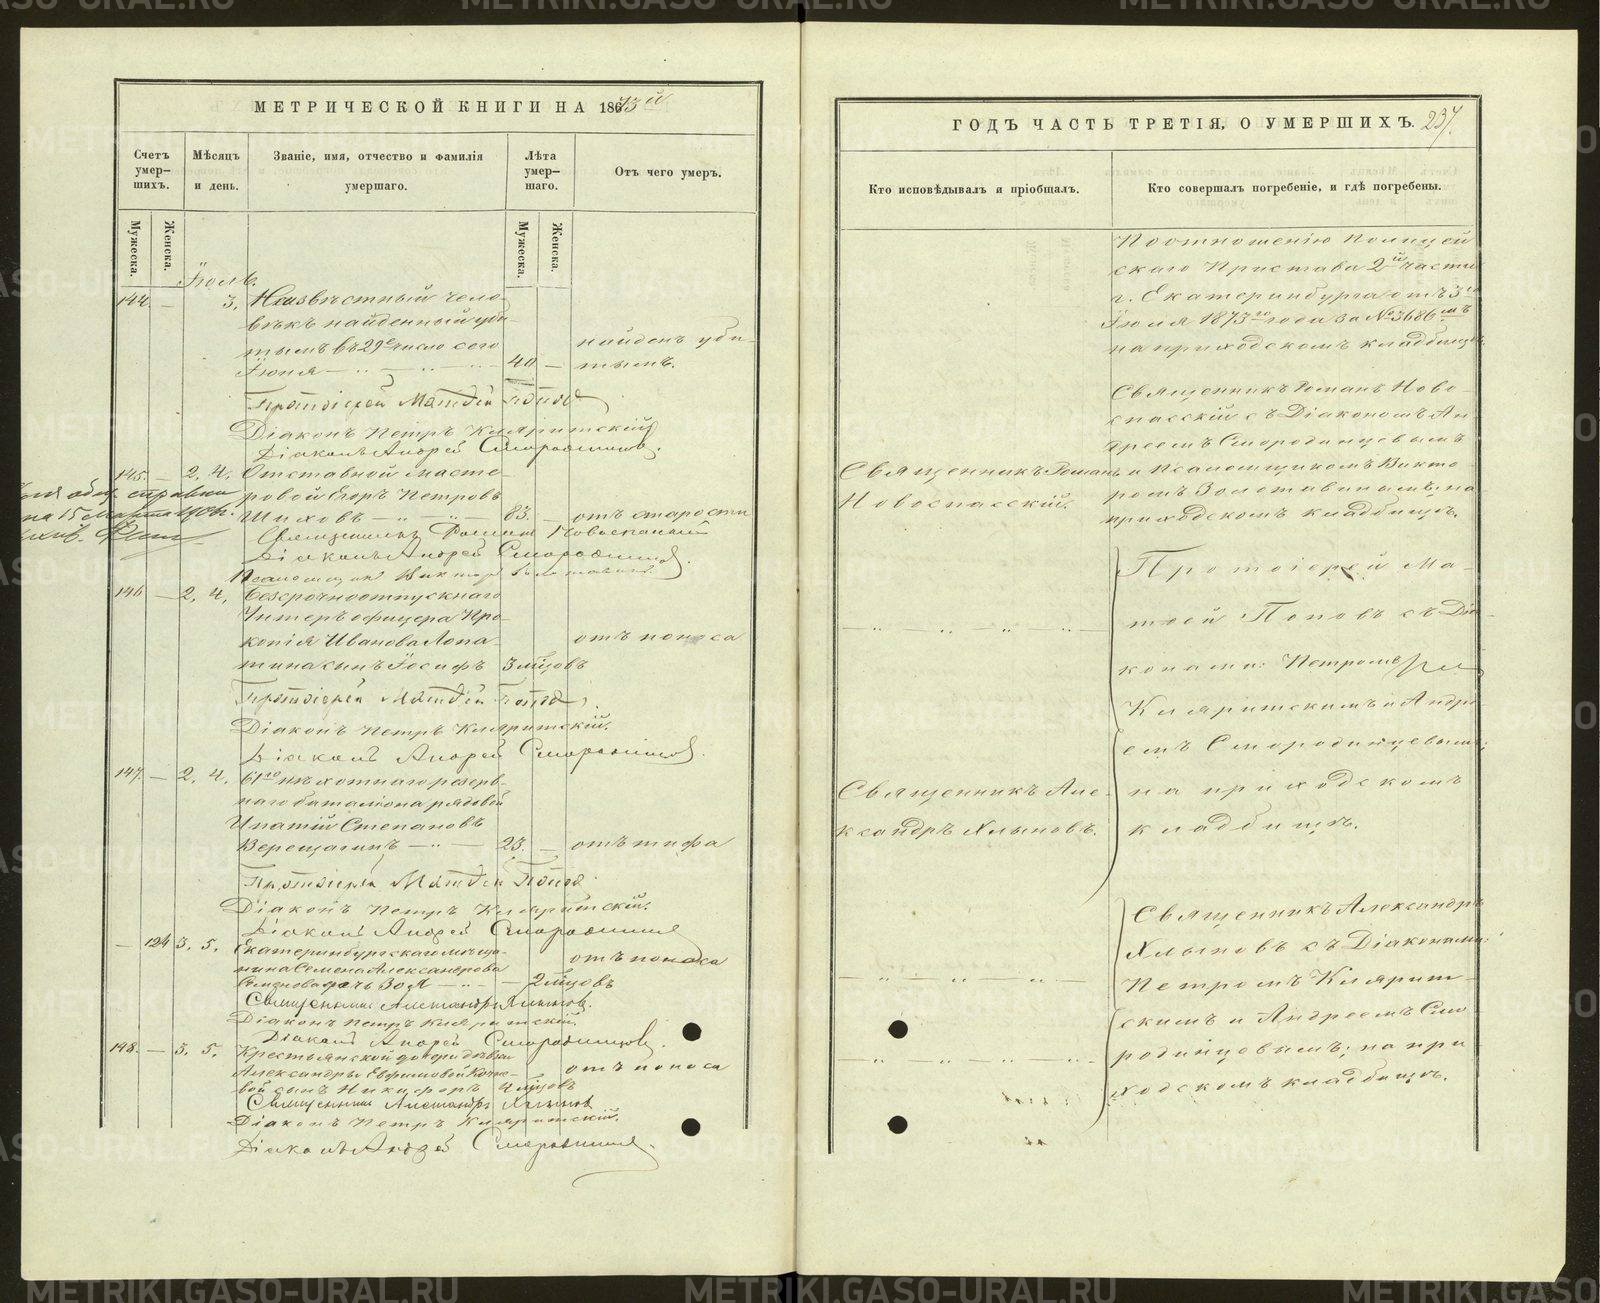 МЕТРИЧЕСКОЙ КНИГИ НА 1873й
Счетъ умер-шихъ.
Мѣсяцъ и день.
Званіе, имя, отчество и фамилія умершаго.
Лѣта умер-шаго.
Отъ чего умеръ.
Мужеска.
Женска.
Мужеска.
Женска.
Іюль.
144 — 3. Неизвѣстный чело-
вѣкъ найденный уби-
тымъ въ 29е число сего
Іюня 40 — найденъ уби-
тымъ.
Протоіерей Матѳей Поповъ
Діаконъ Петръ Кляритскій
Діаконъ Андрей Смородинцовъ.
145. — 2. 4. Отставной масте-
ровой Егоръ Петровъ
Шиховъ 83. — отъ старости
справка
на 15 Марта
Священникъ Романъ Новоспасскій
Діаконъ Андрей Смородинцовъ.
Псаломщикъ Викторъ Золотавинъ.
146 — 2. 4. Безсрочноотпускнаго
Унтеръ офицера Про-
копія Иванова Лопа-
тина сынъ Іосифъ 3 мѣцовъ
отъ поноса
Протоіерей Матѳей Поповъ
Діаконъ Петръ Кляритскій.
Діаконъ Андрей Смородинцовъ.
147. — 2. 4. 61го пѣхотнаго резерв-
наго баталіона рядовой
Ипатій Степановъ
Верещагинъ 23. — отъ тифа
Протоіерей Матѳей Поповъ
Діаконъ Петръ Кляритскій.
Діаконъ Андрей Смородинцовъ
— 124 3. 5. Екатеринбургскаго мѣща-
нина Семена Александрова
Семенова дочь Зоя — 2 мѣцовъ
отъ поноса
Священникъ Александръ Хлыновъ.
Діаконъ Петръ Кляритскій.
Діаконъ Андрей Смородинцовъ.
148. — 3. 5. Крестьянской дочери дѣвки
Александры Евфимовой
сынъ Никифоръ 4 мѣцовъ
отъ поноса
Священникъ Александръ Хлыновъ
Діаконъ Петръ Кляритскій.
Діаконъ Андрей Смородинцовъ.
ГОДЪ ЧАСТЬ ТРЕТІЯ, О УМЕРШИХЪ. 237.
Кто исповѣдывалъ и пріобщалъ.
Кто совершалъ погребеніе, и гдѣ погребены.
По отношенію Полицей
скаго Пристава 2й части
г. Екатеринбурга отъ 3го
Іюля 1873го года за № 3686мъ
на приходскомъ кладбищѣ.
Священникъ Романъ Ново-
спасскій съ Діакономъ Ан-
дреемъ Смородинцевымъ
Священникъ Романъ
Новоспасскій.
и Псаломщикомъ Викто
ромъ Золотавинымъ; на
приходскомъ кладбищѣ.
Протоіерей Ма-
тѳей Поповъ съ Діа-
конами: Петромъ
Кляритскимъ и Андре-
емъ Смородинцевымъ;
на приходскомъ
кладбищѣ.
Священникъ Але-
ксандръ Хлыновъ.
Священникъ Александръ
Хлыновъ съ Діаконами:
Петромъ Клярит-
скимъ и Андреемъ Смо-
родинцевымъ; на при
ходскомъ кладбищѣ.
METRIKI.GASO-URAL.RU